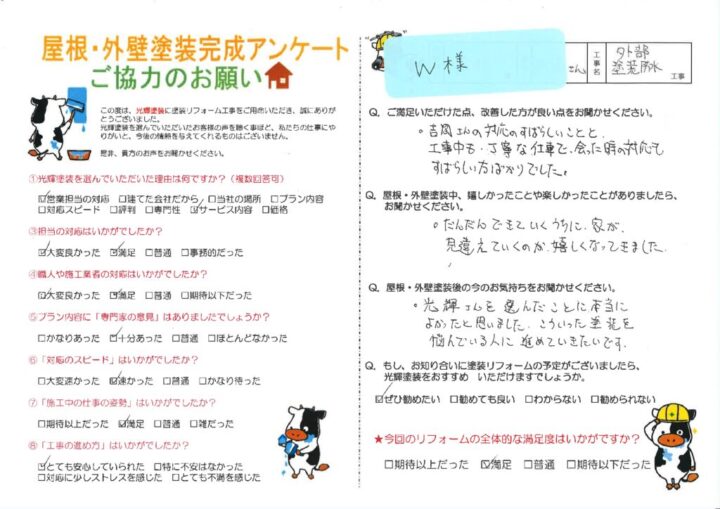 屋根・外壁塗装完成アンケート
ご協力のお願い
この度は、光輝塗装に塗装リフォーム工事をご用命いただき、誠にありがとうございました。
光輝塗装を選んでいただいたお客様の声を聴く事ほど、私たちの仕事にやりがいと、今後の情熱を与えてくれるものはございません。
是非、貴方のお声をお聞かせください。
①光輝塗装を選んでいただいた理由は何ですか?(複数回答可)
☑営業担当の対応 □建てた会社だから □当社の場所 □プラン内容
□対応スピード □評判 □専門性 ☑サービス内容 □価格
③担当の対応はいかがでしたか?
☑大変良かった ☑満足 □普通 □事務的だった
④職人や施工業者の対応はいかがでしたか?
☑大変良かった ☑満足 □普通 □期待以下だった
⑤プラン内容に「専門家の意見」はありましたでしょうか?
□かなりあった ☑十分あった □普通 □ほとんどなかった
⑥「対応のスピード」はいかがでしたか?
□大変速かった ☑速かった □普通 □かなり待った
⑦「施工中の仕事の姿勢」はいかがでしたか?
□期待以上だった ☑満足 □普通 □雑だった
⑧「工事の進め方」はいかがでしたか?
☑とても安心していられた □特に不安はなかった
□対応に少しストレスを感じた □とても不満を感じた
W様
さん
工事名
外部
塗装防水
工事
Q. ご満足いただけた点、改善した方が良い点をお聞かせください。
。吉岡さんの対応のすばらしいことと、
工事中も丁寧な仕事で、会った時の対応も
すばらしい方ばかりでした。
Q. 屋根・外壁塗装中、嬉しかったことや楽しかったことがありましたら、
お聞かせください。
。だんだんできていくうちに、家が、
見違えていくのが、嬉しくなってきました。
Q. 屋根・外壁塗装後の今のお気持ちをお聞かせください。
。光輝さんを選んだことに本当に
よかったと思いました。こういった塗装を
悩んでいる人に進めていきたいです。
Q. もし、お知り合いに塗装リフォームの予定がございましたら、
光輝塗装をおすすめ いただけますでしょうか。
☑ぜひ勧めたい □勧めても良い □わからない □勧められない
★今回のリフォームの全体的な満足度はいかがですか?
□期待以上だった ☑満足 □普通 □期待以下だった